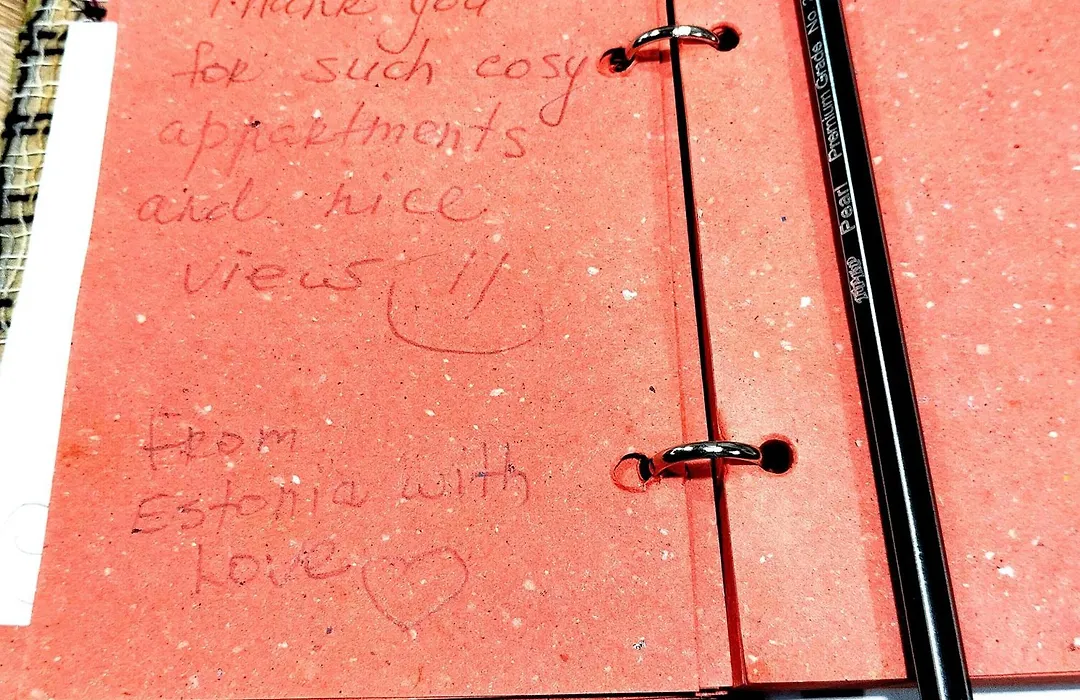 Thank you
for such cosy
appartments
and nice
views
From
Estonia with
Love
Pearl Premium Grade No 2